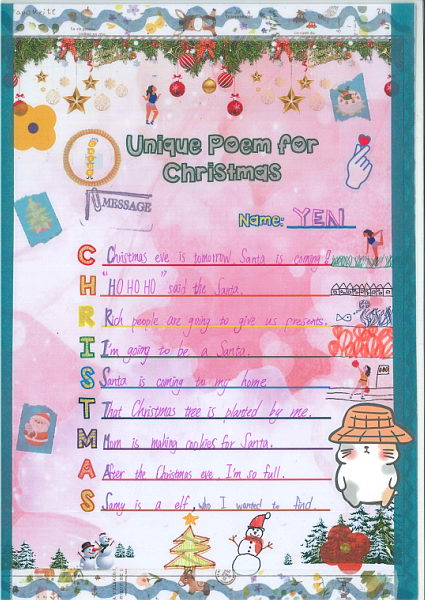 Unique Poem for
Christmas
MESSAGE
Name: YEN
Christmas eve is tomorrow, Santa is coming!!
"HO HO HO" said the Santa.
Rich people are going to give us presents.
I'm going to be a Santa.
Santa is coming to my home.
That Christmas tree is planted by me.
Mom is making cookies for Santa.
After the Christmas eve, I'm so full.
Samy is a elf, who I wanted to find.